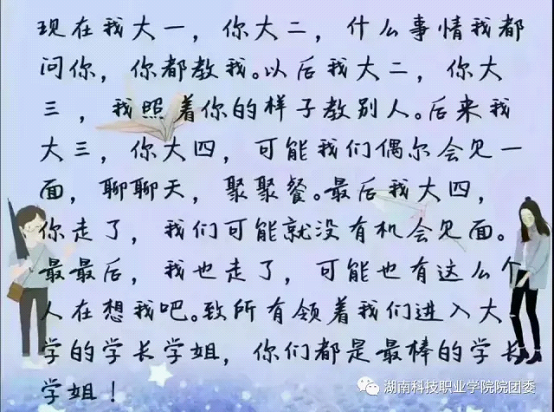 现在我大一，你大二，什么事情我都
问你，你都教我。以后我大二，你大
三，我照着你的样子教别人。后来我
大三，你大四，可能我们偶尔会见一
面，聊聊天，聚聚餐。最后我大四，
你走了，我们可能就没有机会见面。
最最后，我也走了，可能也有这么个
人在想我吧。致所有领着我们进入大
学的学长学姐，你们都是最棒的学长
学姐！
湖南科技职业学院院团委